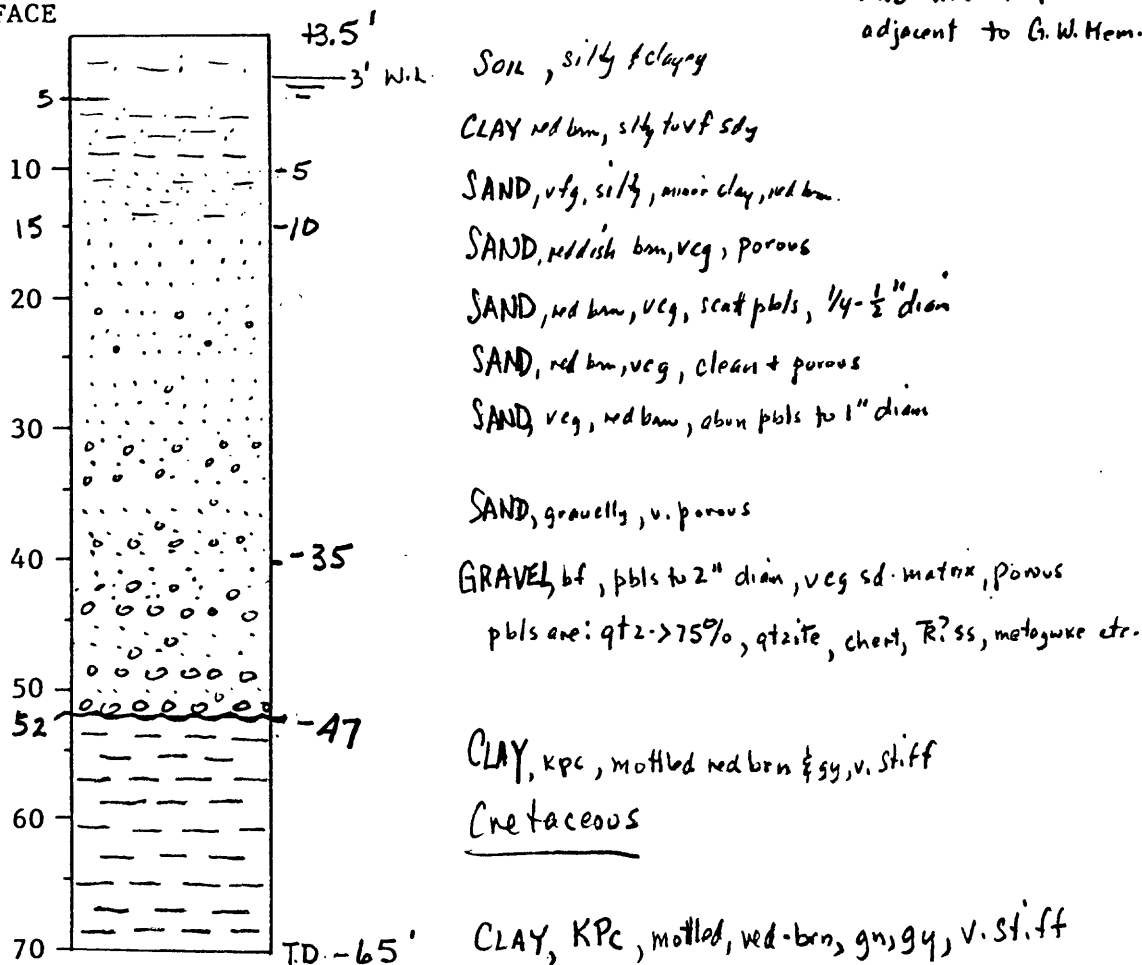 FACE
adjacent to G.W. Mem.
+3.5'
3' W.L.
SOIL, silty & clayey
5
CLAY red brn, slty to vf sdy
10
-5
SAND, vfg, silty, minor clay, red brn.
15
-10
SAND, reddish brn, vcg, porous
20
SAND, red brn, vcg, scatt pbls, 1/4-1/2" diam
SAND, red brn, vcg, clean + porous
30
SAND, vcg, red brn, abun pbls to 1" diam
SAND, gravelly, v. porous
40
-35
GRAVEL, bf, pbls to 2" diam, vcg sd. matrix, porous
pbls are: qtz->75%, qtzite, chert, TR? ss, metagwke etc.
50
52
-47
CLAY, Kpc, mottled red brn & gy, v. stiff
60
Cretaceous
70
T.D. -65'
CLAY, KPc, mottled, red-brn, gn, gy, v. stiff